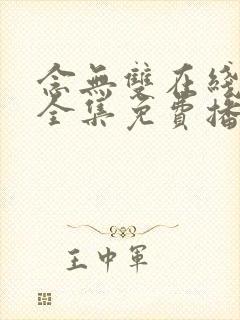 念無雙在綫
全集免費播
王中軍